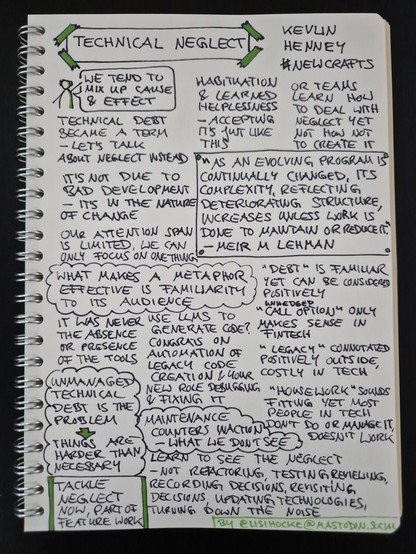 TECHNICAL NEGLECT
KEVLIN
HENNEY
#NEWCRAFTS
WE TEND TO
MIX UP CAUSE
& EFFECT
TECHNICAL DEBT
BECAME A TERM
– LET'S TALK
ABOUT NEGLECT INSTEAD
IT'S NOT DUE TO
BAD DEVELOPMENT
– IT'S IN THE NATURE
OF CHANGE
OUR ATTENTION SPAN
IS LIMITED, WE CAN
ONLY FOCUS ON ONE THING
HABITUATION
& LEARNED
HELPLESSNESS
– ACCEPTING
IT'S JUST LIKE
THIS
OR TEAMS
LEARN HOW
TO DEAL WITH
NEGLECT YET
NOT HOW NOT
TO CREATE IT
"AS AN EVOLVING PROGRAM IS
CONTINUALLY CHANGED, ITS
COMPLEXITY, REFLECTING
DETERIORATING STRUCTURE,
INCREASES UNLESS WORK IS
DONE TO MAINTAIN OR REDUCE IT."
– MEIR M LEHMAN
WHAT MAKES A METAPHOR
EFFECTIVE IS FAMILIARITY
TO ITS AUDIENCE
IT WAS NEVER
THE ABSENCE
OR PRESENCE
OF THE TOOLS
USE LLMS TO
GENERATE CODE?
CONGRATS ON
AUTOMATION OF
LEGACY CODE
CREATION & YOUR
NEW ROLE DEBUGGING
& FIXING IT
"DEBT" IS FAMILIAR
YET CAN BE CONSIDERED
POSITIVELY
UNHEDGED
"CALL OPTION" ONLY
MAKES SENSE IN
FINTECH
"LEGACY" CONNOTATED
POSITIVELY OUTSIDE,
COSTLY IN TECH
"HOUSEWORK" SOUNDS
FITTING YET MOST
PEOPLE IN TECH
DON'T DO OR MANAGE IT,
DOESN'T WORK
UNMANAGED
TECHNICAL
DEBT IS THE
PROBLEM
THINGS ARE
HARDER THAN
NECESSARY
MAINTENANCE
COUNTERS INACTION
– WHAT WE DON'T SEE
LEARN TO SEE THE NEGLECT
– NOT REFACTORING, TESTING, REVIEWING,
RECORDING DECISIONS, REVISITING
DECISIONS, UPDATING TECHNOLOGIES,
TURNING DOWN THE NOISE
TACKLE
NEGLECT
NOW, PART OF
FEATURE WORK
BY @LISIHOCKE@MASTODON.SOCIAL